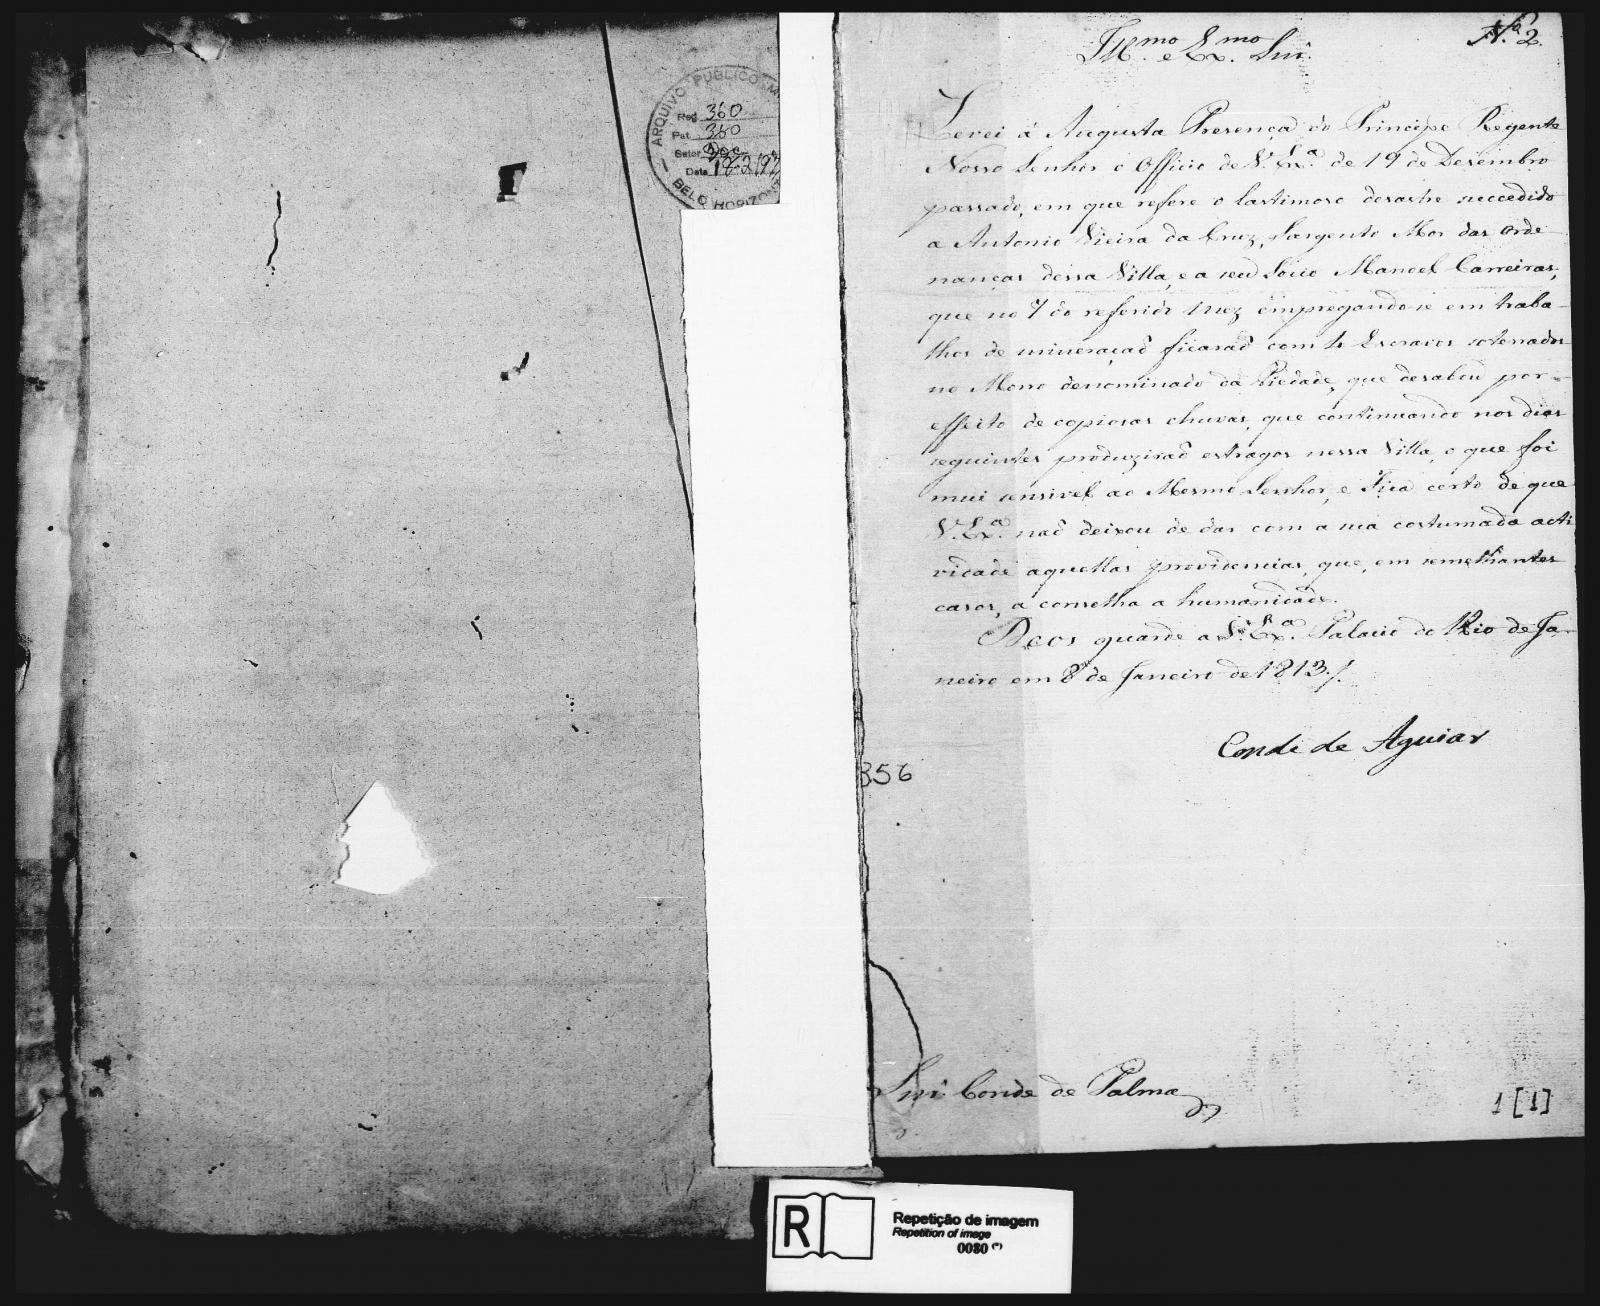 ARQUIVO PUBLICO M
Reg 360
Pat 380
Setor Doc
Data
BELO HORIZONT
Nº 2.
Illmo. e Exmo. Snr.
Levei á Augusta Presença do Principe Regente
Nosso Senhor o Officio de V. Exª. de 19 de Desembro
passado, em que refere o lastimoso desastre succedido
a Antonio Vieira da Cruz, Sargento Mor das Orde-
nanças dessa Villa, e a seu Socio Manoel Carreiras,
que no 7 do referido mez empregando-se em traba-
lhos de mineraçaõ ficaraõ com Escravos soterrados
no Morro denominado da Piedade, que desabou por
effeito de copiosas chuvas, que continuando nos dias
seguintes produziraõ estragos nessa Villa, o que foi
mui sensivel ao Mesmo Senhor, e Fica certo de que
V. Exª. naõ deixou de dar com a sua costumada acti
vidade aquellas providencias, que, em semelhantes
casos, a conselha a humanidade.
Deos guarde a V. Exª. Palacio do Rio de Ja-
neiro em 8 de Janeiro de 1813./.
Conde de Aguiar
356
Snr. Conde de Palma
1 [1]
R
Repetição de imagem
Repetition of image
0080 (*)